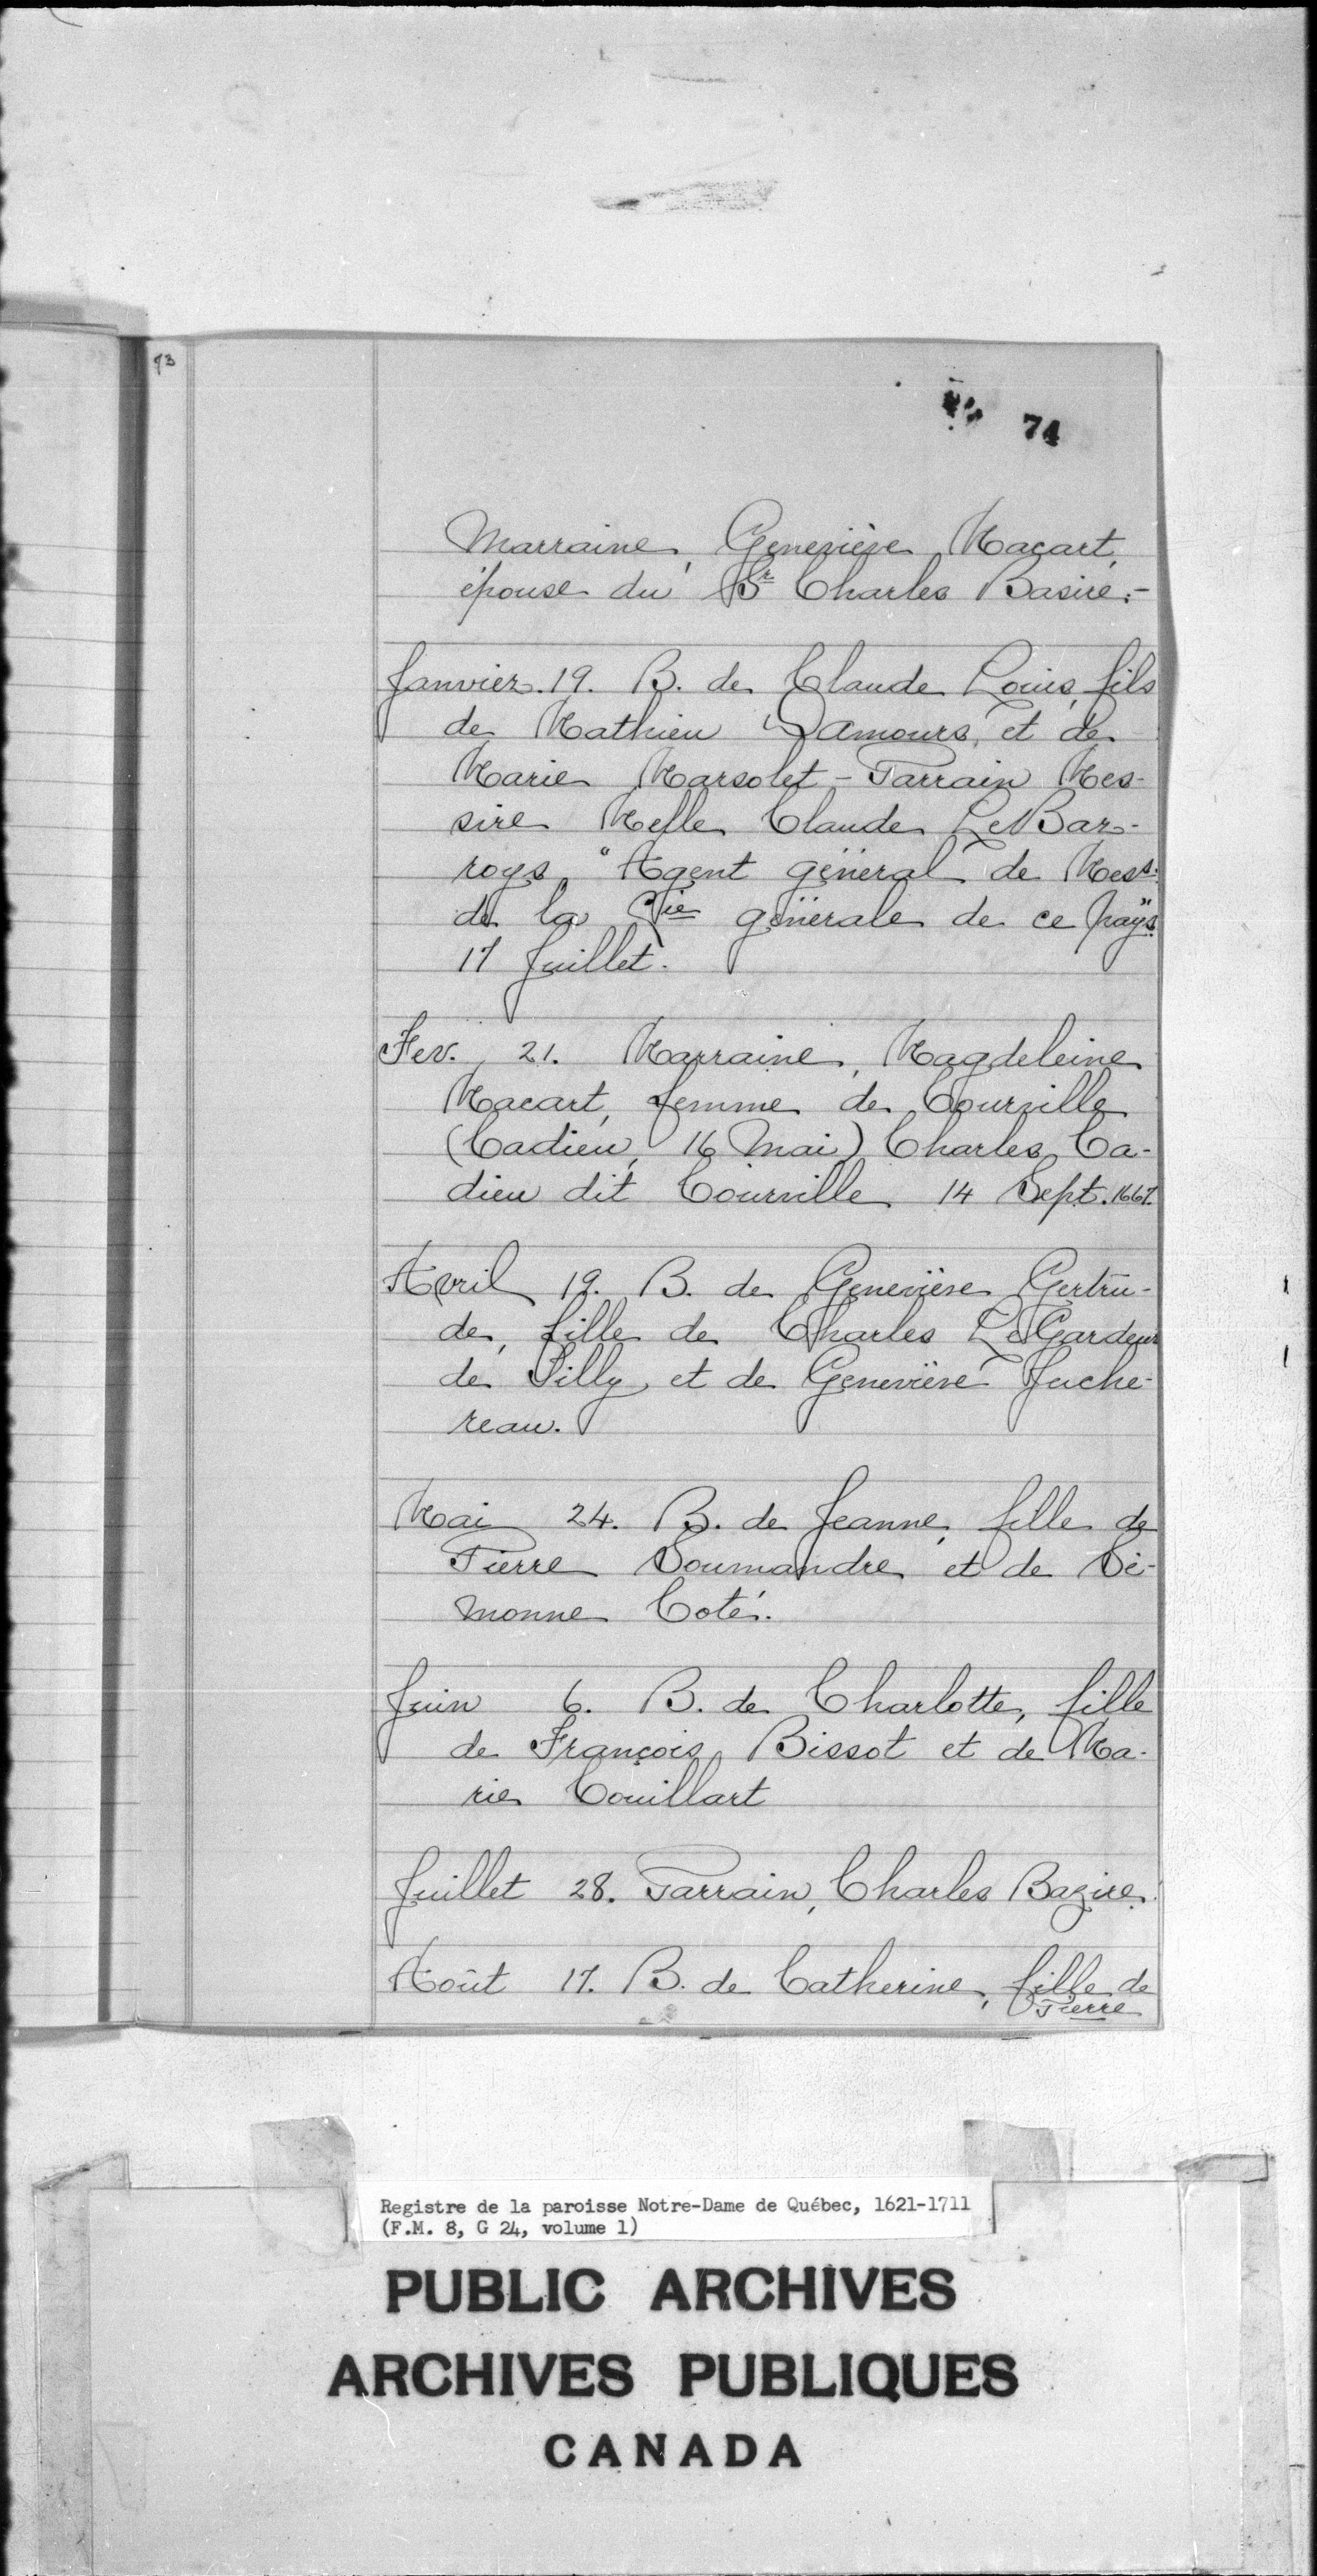 93
74
Marraine, Geneviève Macart,
épouse du Sr Charles Basire.-
Janvier. 19. B. de Claude Louis, fils
de Mathieu Damours, et de
Marie Marsolet - Parrain Mes-
sire Melle Claude LeBar-
roys "Agent général de Messrs.
de la Cie générale de ce pays"
17 Juillet.
Fev. 21. Marraine, Magdeleine
Macart, femme de Courville
(Cadieu, 16 Mai) Charles Ca-
dieu dit Courville 14 Sept. 1667.
Avril 19. B. de Geneviève Gertru-
de, fille de Charles LeGardeur
de Tilly et de Geneviève Juche-
reau.
Mai 24. B. de Jeanne, fille de
Pierre Soumandre et de Si-
monne Coté.
Juin 6. B. de Charlotte, fille
de François Bissot et de Ma-
rie Couillart
Juillet 28. Parrain, Charles Bazire.
Août 17. B. de Catherine, fille de
Pierre
Registre de la paroisse Notre-Dame de Québec, 1621-1711
(F.M. 8, G 24, volume 1)
PUBLIC ARCHIVES
ARCHIVES PUBLIQUES
CANADA